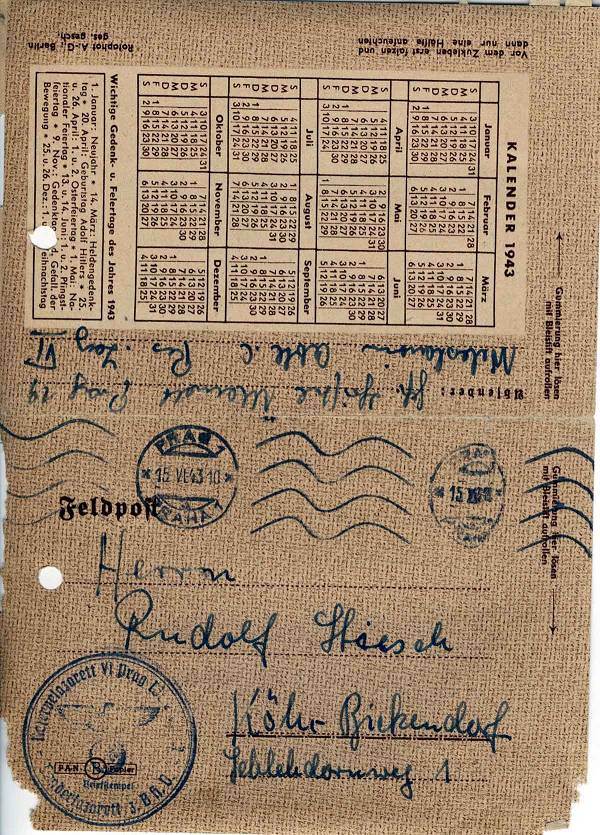 Vor dem Zukleben erst falzen und
dann nur eine Hälfte anfeuchten
Rotophot A.-G., Berlin
ges. gesch.
KALENDER 1943
Januar Februar März
S 3 10 17 24 31 7 14 21 28 7 14 21 28
M 4 11 18 25 1 8 15 22 1 8 15 22 29
D 5 12 19 26 2 9 16 23 2 9 16 23 30
M 6 13 20 27 3 10 17 24 3 10 17 24 31
D 7 14 21 28 4 11 18 25 4 11 18 25
F 1 8 15 22 29 5 12 19 26 5 12 19 26
S 2 9 16 23 30 6 13 20 27 6 13 20 27
April Mai Juni
S 4 11 18 25 2 9 16 23 30 6 13 20 27
M 5 12 19 26 3 10 17 24 31 7 14 21 28
D 6 13 20 27 4 11 18 25 1 8 15 22 29
M 7 14 21 28 5 12 19 26 2 9 16 23 30
D 1 8 15 22 29 6 13 20 27 3 10 17 24
F 2 9 16 23 30 7 14 21 28 4 11 18 25
S 3 10 17 24 1 8 15 22 29 5 12 19 26
Juli August September
S 4 11 18 25 1 8 15 22 29 5 12 19 26
M 5 12 19 26 2 9 16 23 30 6 13 20 27
D 6 13 20 27 3 10 17 24 31 7 14 21 28
M 7 14 21 28 4 11 18 25 1 8 15 22 29
D 1 8 15 22 29 5 12 19 26 2 9 16 23 30
F 2 9 16 23 30 6 13 20 27 3 10 17 24
S 3 10 17 24 31 7 14 21 28 4 11 18 25
Oktober November Dezember
S 3 10 17 24 31 7 14 21 28 5 12 19 26
M 4 11 18 25 1 8 15 22 29 6 13 20 27
D 5 12 19 26 2 9 16 23 30 7 14 21 28
M 6 13 20 27 3 10 17 24 1 8 15 22 29
D 7 14 21 28 4 11 18 25 2 9 16 23 30
F 1 8 15 22 29 5 12 19 26 3 10 17 24 31
S 2 9 16 23 30 6 13 20 27 4 11 18 25
Wichtige Gedenk- u. Feiertage des Jahres 1943
1. Januar: Neujahr * 14. März: Heldengedenk-
tag * 20. April: Geburtstag Adolf Hitlers * 25.
u. 26. April: 1. u. 2. Osterfeiertag * 1. Mai: Na-
tionaler Feiertag * 13. u. 14. Juni: 1. u. 2. Pfingst-
feiertag * 9. Nov.: Gedenktag Gefall. der
Bewegung * 25. u. 26. Dez.: 1. Weihnachtstag
Gummierung hier lösen
mit Bleistift aufrollen
Absender: Prag 19
Abtl. C Res. Laz. VI
PRAG 1
15 VI 43 10
PRAHA 1
15
Gummierung hier lösen
mit Bleistift aufrollen
Feldpost
Herrn
Rudolf
Köln-Bickendorf
Schlehdornweg 1
Reservelazarett VI Prag
PAN Papier
Briefstempel